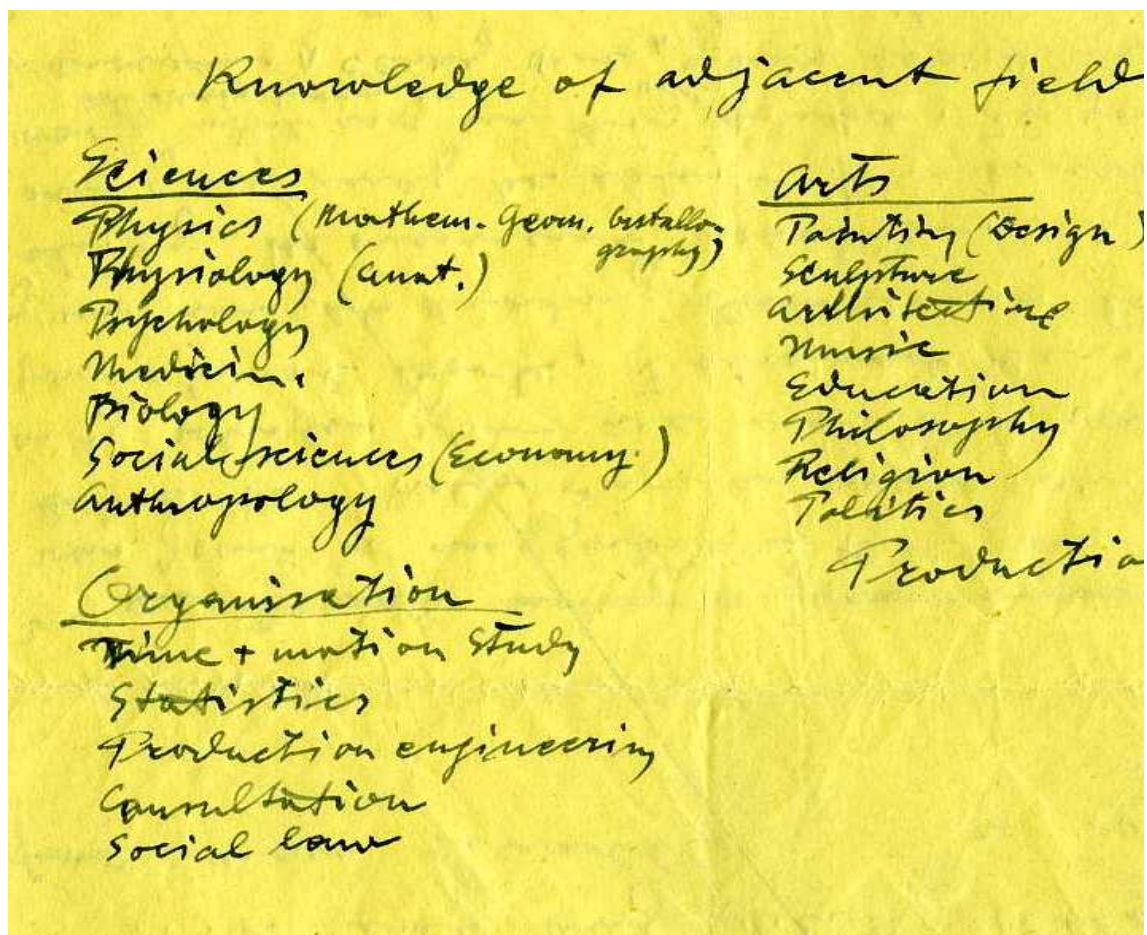 Knowledge of adjacent field
Sciences
Physics (Mathem. Geom. Cristallo-
graphy)
Physiology (Anat.)
Psychology
Medicin.
Biology
Social sciences (Economy.)
Anthropology
Organisation
Time + motion study
Statistics
Production engineering
Consultation
Social law
Arts
Painting (Design)
Sculpture
Architecture
Music
Education
Philosophy
Religion
Politics
Productio